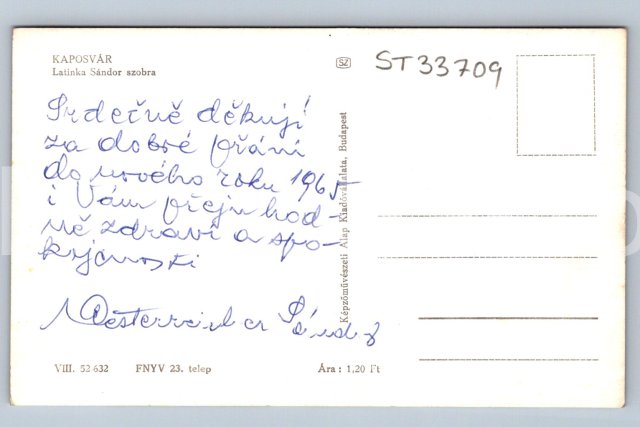 KAPOSVÁR
Latinka Sándor szobra
SZ
ST33709
Srdečně děkuji
za dobré přání
do nového roku 1965
i Vám přeju hod-
ně zdraví a spo-
kojnosti
Képzőművészeti Alap Kiadóvállalata, Budapest
VIII. 52 632 FNYV 23. telep Ára : 1,20 Ft